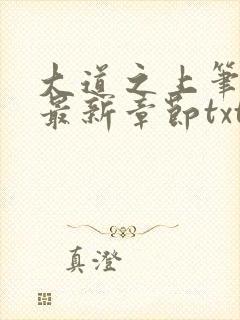 大道之上笔
最新章节txt
真澄